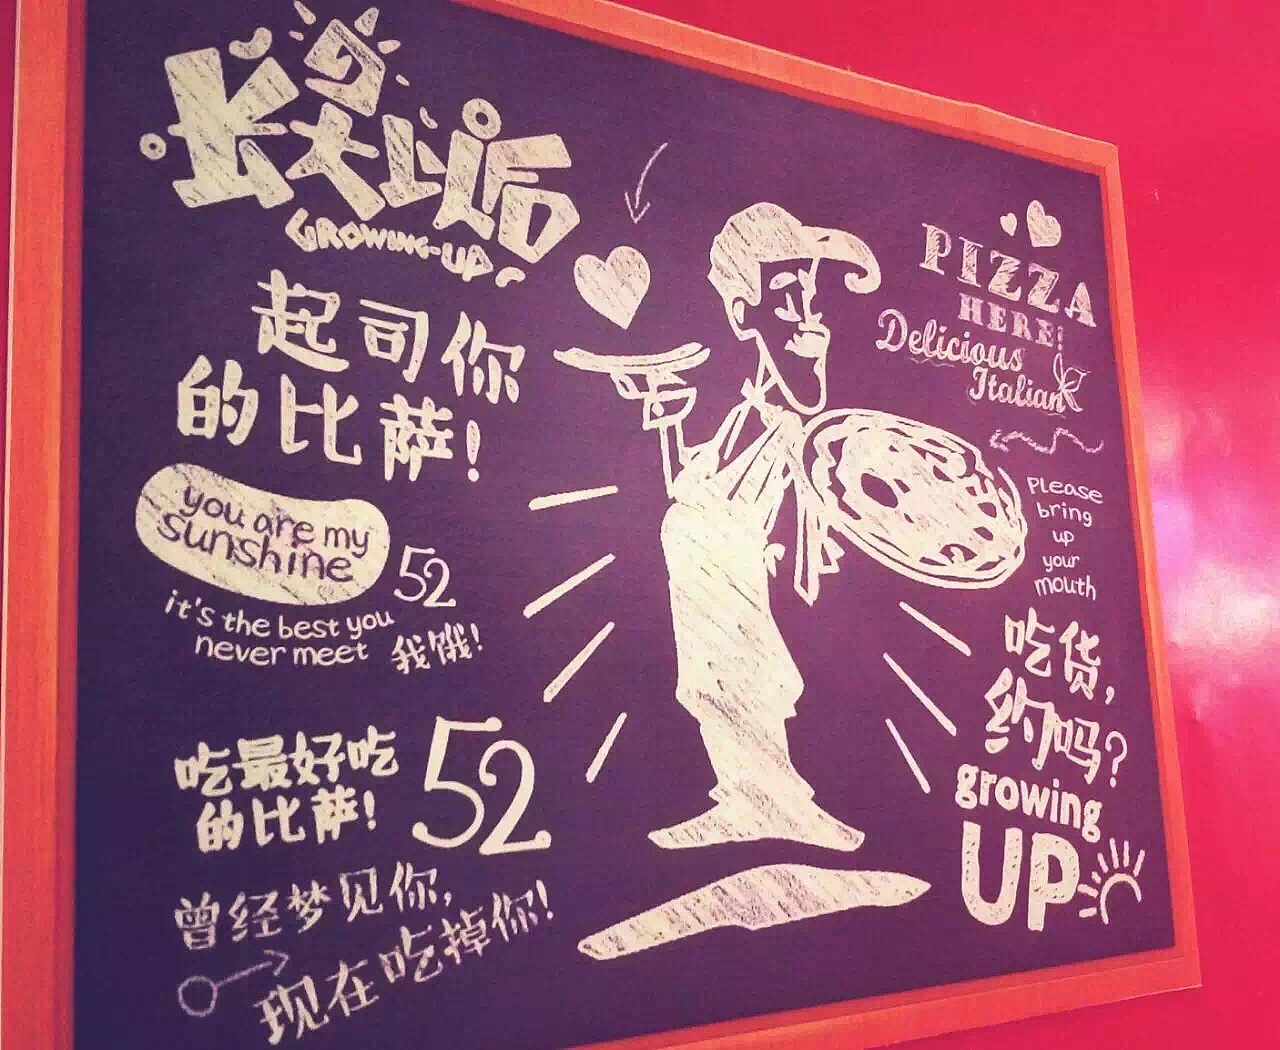 长大以后
GROWING-UP
起司你
的比萨!
you are my
sunshine
52
it's the best you
never meet
我饿!
吃最好吃
的比萨!
52
曾经梦见你,
现在吃掉你!
PIZZA
HERE!
Delicious
Italian
Please
bring
up
your
mouth
吃货,
约吗?
growing
UP